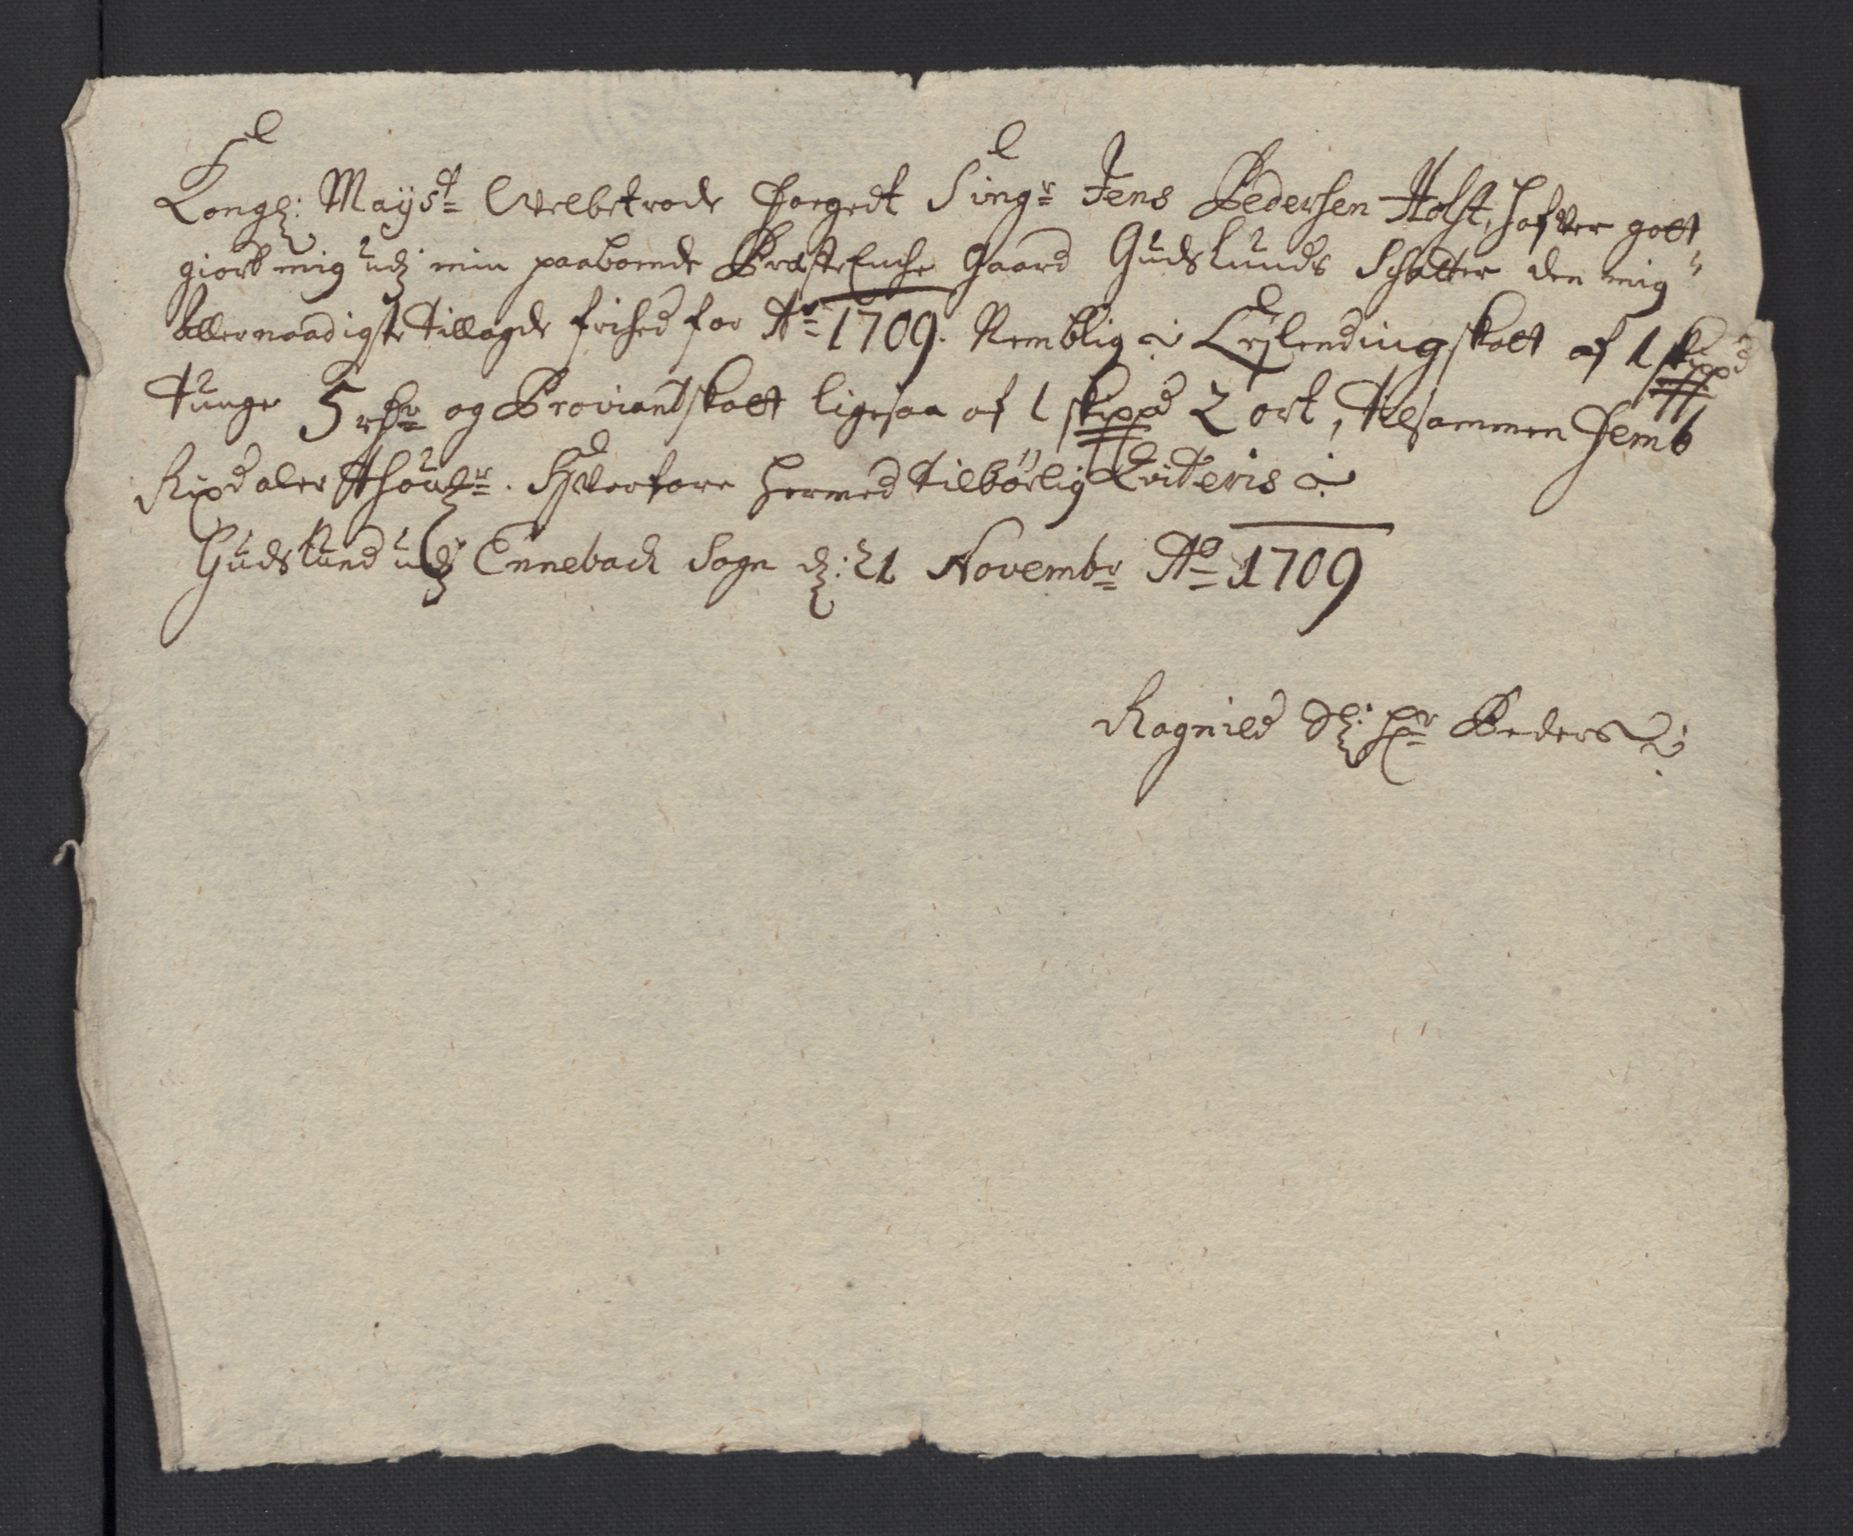 Kongl: Mayst Velbetrode Foegedt Sing:r Jens Pedersen Holst, hafver gott
giort mig udj min paaboende Præste Enche Gaard Gudslunds Schatter den mig
allernaadigste tillagde frihed for Ao 1709. Nemblig Leylendingskatt af 1 skippd
tunge 5 rdr og Proviantskatt ligesaa af 1 skippd 2 ort, tilsammen Femb
Rixdaler thou. Hvorfore hermed tilbørlig Qviteris
Gudslund udj Ennebach Sogn d: 21 Novembr Ao 1709
Ragnild Sl: Hr Peders